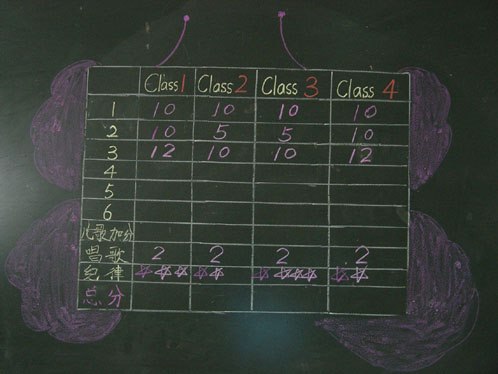 Class 1 Class 2 Class 3 Class 4
1 10 10 10 10
2 10 5 5 10
3 12 10 10 12
4
5
6
儿歌加分
唱歌 2 2 2 2
纪律 ☆☆☆ ☆☆ ☆☆☆☆ ☆☆
总分